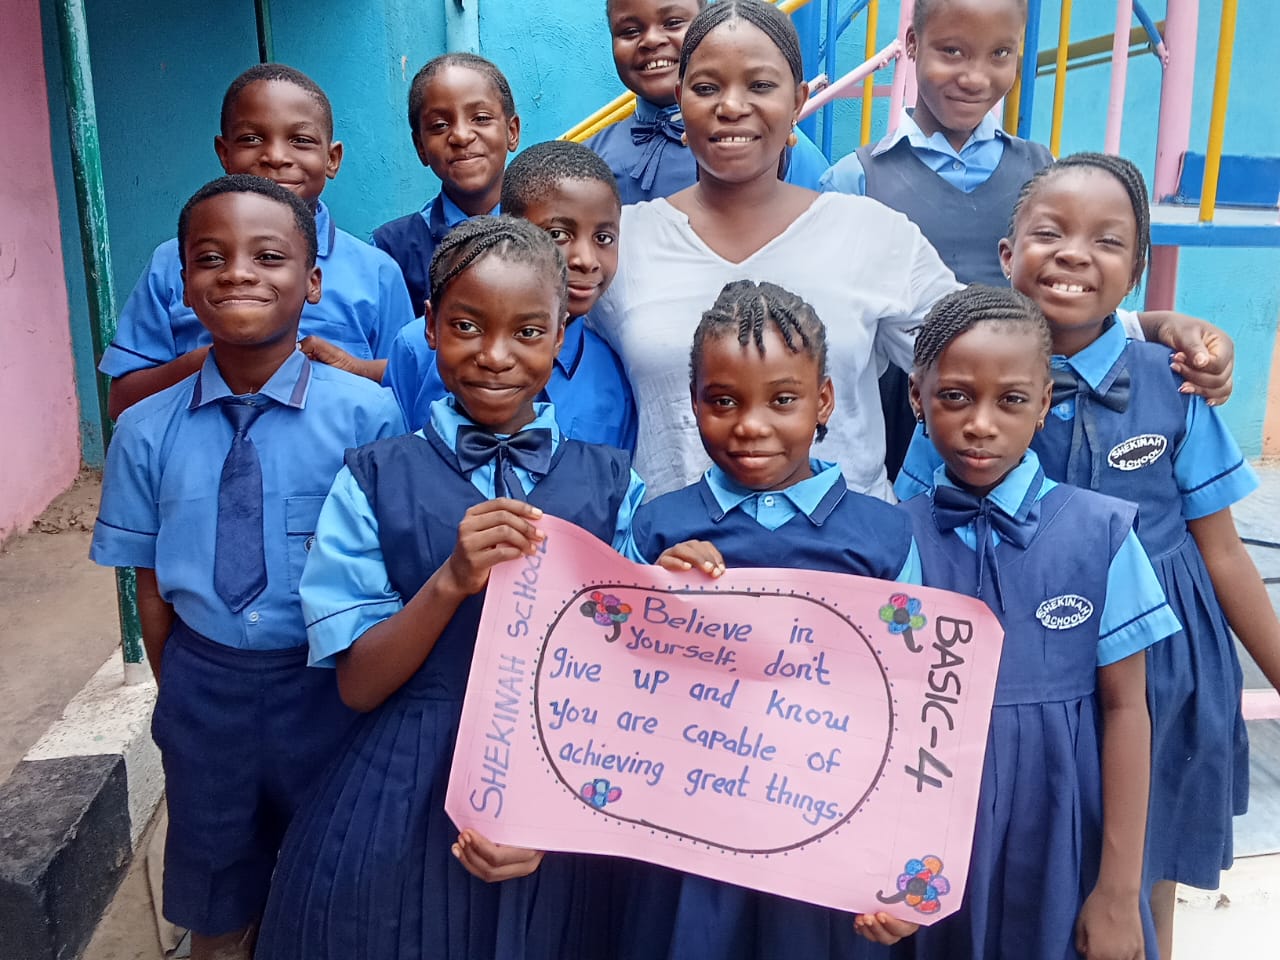 SHEKINAH SCHOOL
Believe in
yourself, don't
give up and know
you are capable of
achieving great things.
BASIC-4
SHEKINAH
SCHOOL
SHEKINAH
SCHOOL